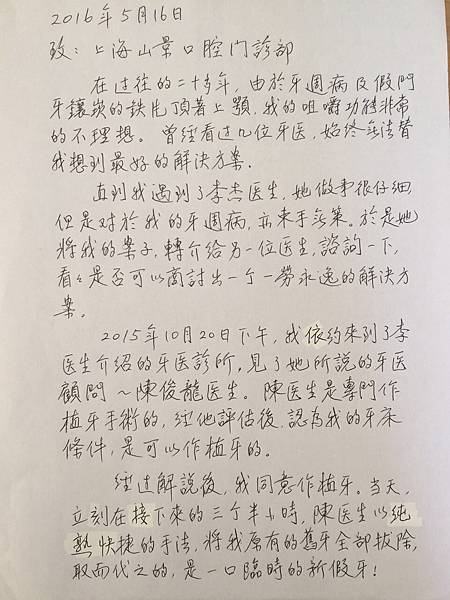 2016年5月16日
致：上海山景口腔门診部
在过往的二十多年，由於牙週病及假門
牙鑲崁的鉄片頂著上顎，我的咀嚼功能非常
的不理想。曾經看过几位牙医，始终無法替
我想到最好的解決方案.
直到我遇到了李杰医生，她做事很仔细，
但是对於我的牙週病，亦束手無策。於是她
將我的案子，轉介给另一位医生，諮詢一下，
看々是否可以商討出一个一勞永逸的解決方
案。
2015年10月20日下午，我依約來到了李
医生介绍的牙医診所，見了她所說的牙医
顧問～陳俊龍医生。陳医生是專門作
植牙手術的，經他評估後，認為我的牙床
條件，是可以作植牙的。
經过解說後，我同意作植牙。当天，
立刻在接下來的三个半小時，陳医生以純
熟快捷的手法，將我原有的舊牙全部拔除，
取而代之的，是一口臨時的新假牙！